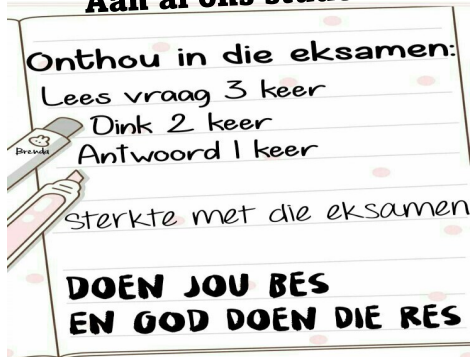 Aan al ons
Onthou in die eksamen:
Lees vraag 3 keer
Dink 2 keer
Antwoord 1 keer
Brenda
sterkte met die eksamen
DOEN JOU BES
EN GOD DOEN DIE RES